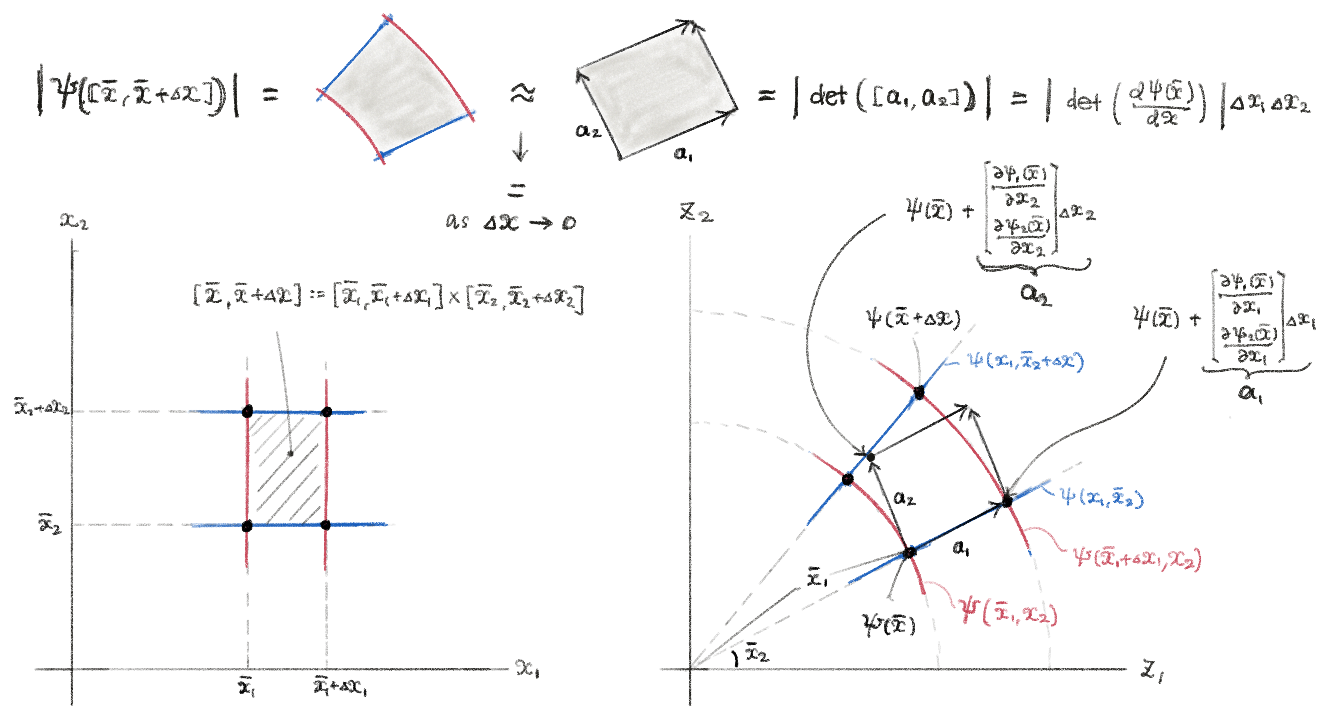 |ψ([x̄, x̄+Δx])| = ≈ = |det([a₁, a₂])| = |det(∂ψ(x̄)/∂x)|Δx₁Δx₂
a₂
a₁
↓
=
as Δx → 0
x₂
[x̄, x̄+Δx] := [x̄₁, x̄₁+Δx₁] × [x̄₂, x̄₂+Δx₂]
x̄₂+Δx₂
x̄₂
x̄₁
x̄₁+Δx₁
x₁
z₂
ψ(x̄) + [∂ψ₁(x̄)/∂x₂ ∂ψ₂(x̄)/∂x₂] Δx₂
a₂
ψ(x̄) + [∂ψ₁(x̄)/∂x₁ ∂ψ₂(x̄)/∂x₁] Δx₁
a₁
ψ(x̄+Δx)
ψ(x₁, x̄₂+Δx)
a₂
ψ(x₁, x̄₂)
a₁
ψ(x̄₁+Δx₁, x₂)
x̄₁
ψ(x̄₁, x₂)
ψ(x̄)
x̄₂
z₁